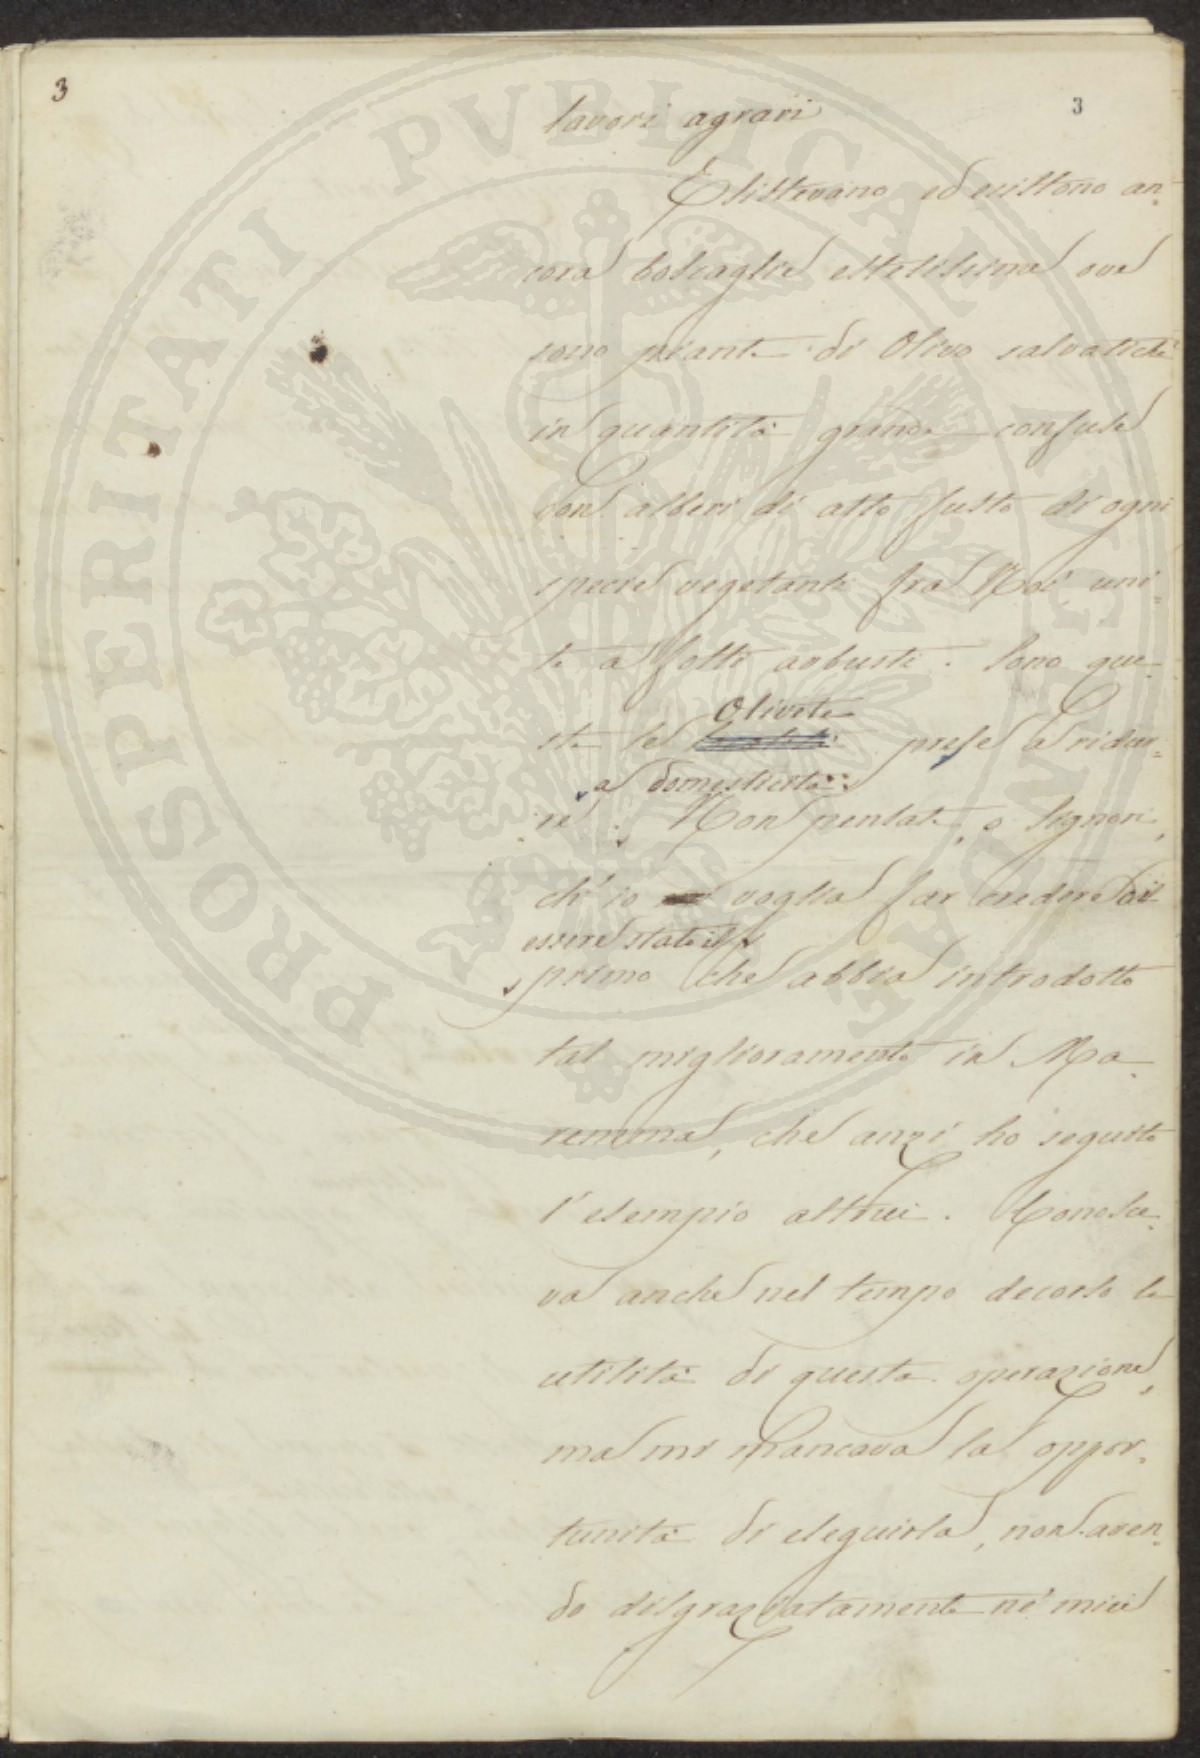 3
3
lavori agrari
Esistevano ed esistono an-
cora boscaglie estesissime ove
sono piante di Olivo salvatiche
in quantità grande confuse
con alberi di alto fusto di ogni
specie vegetanti fra Noi uni-
te a folti arbusti. Sono que-
Olivete
ste le prese a ridur-
a domesticità.
re. Non pensate, o Signori,
ch'io voglia far credere di
essere stato il
primo che abbia introdotto
tal miglioramento in Ma-
remma, che anzi ho seguito
l'esempio altrui. Conosce-
va anche nel tempo decorso la
utilità di questa operazione,
ma mi mancava la oppor-
tunità di eseguirla, non aven-
do disgraziatamente ne' miei
PROSPERITATI PVBLICAE AVGENDAE